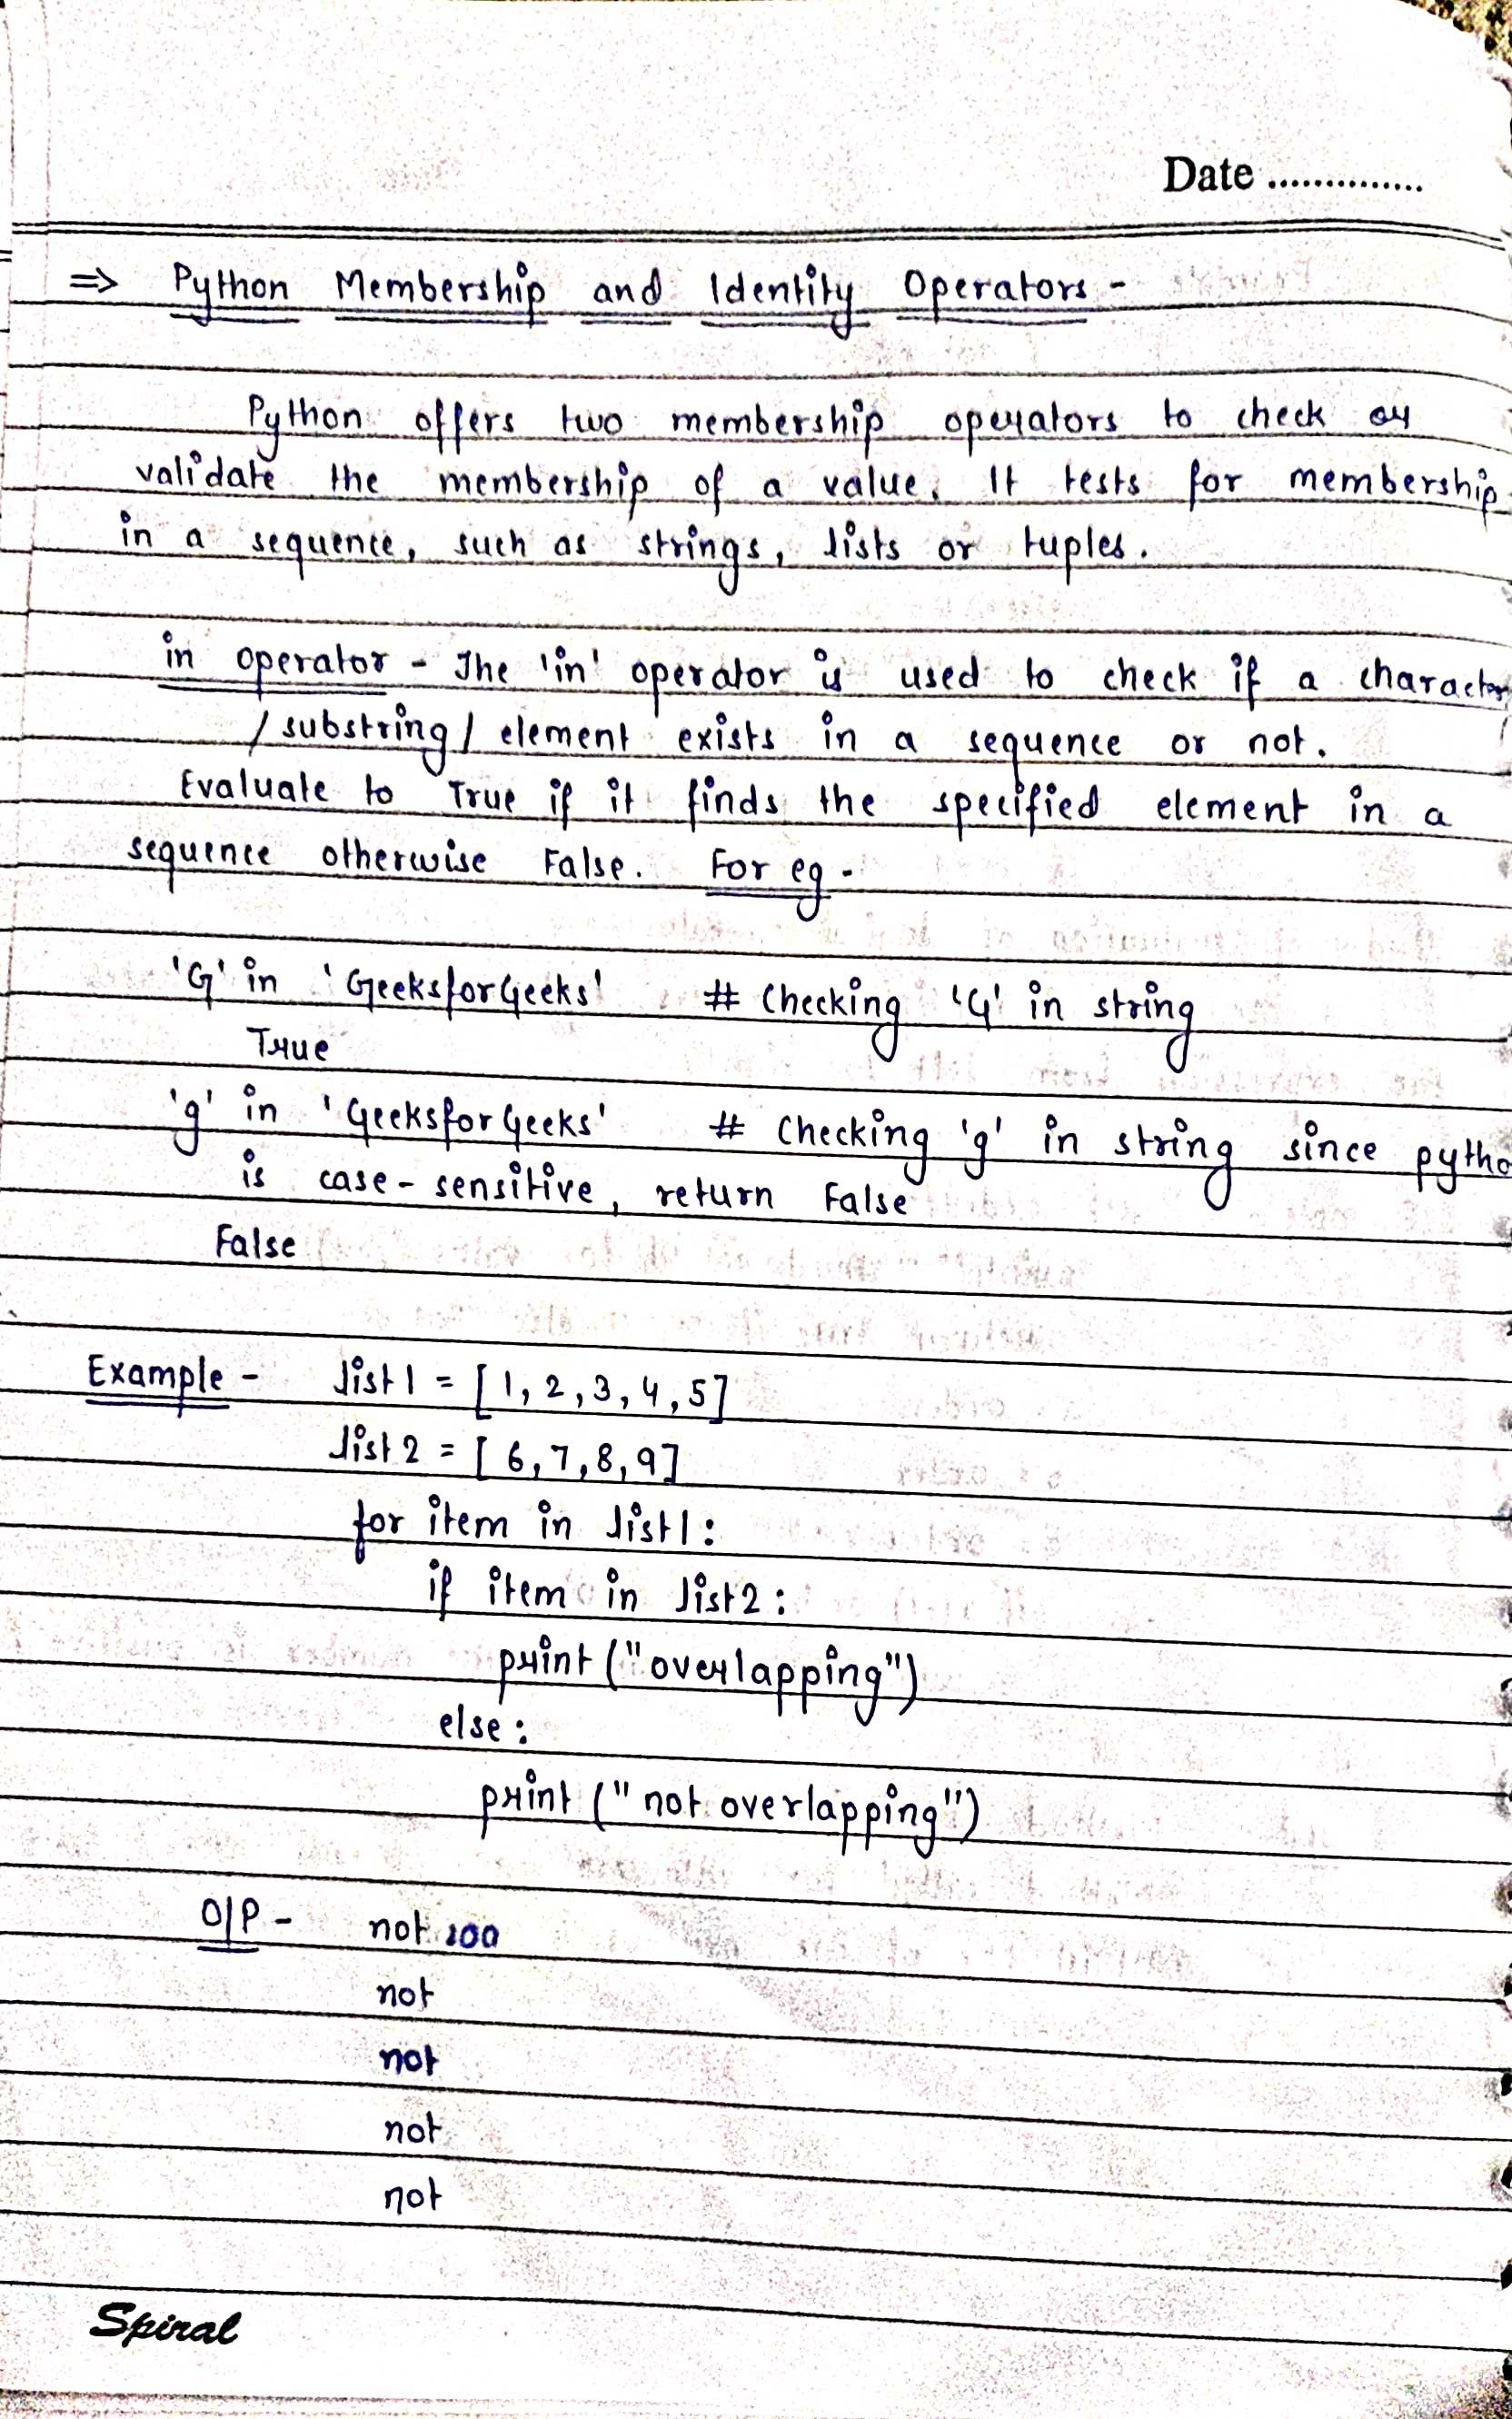 Date ..............
⇒ Python Membership and Identity Operators -
Python offers two membership operators to check or
validate the membership of a value. It tests for membership
in a sequence, such as strings, lists or tuples.
in operator - The 'in' operator is used to check if a character
/ substring / element exists in a sequence or not.
Evaluate to True if it finds the specified element in a
sequence otherwise False. For eg -
'G' in 'GeeksforGeeks' # Checking 'G' in string
True
'g' in 'GeeksforGeeks' # Checking 'g' in string since pytho
is case-sensitive, return False
False
Example - list1 = [1, 2, 3, 4, 5]
list2 = [6, 7, 8, 9]
for item in list1:
if item in list2:
print ("overlapping")
else:
print ("not overlapping")
O/P - not
not
not
not
not
Spiral